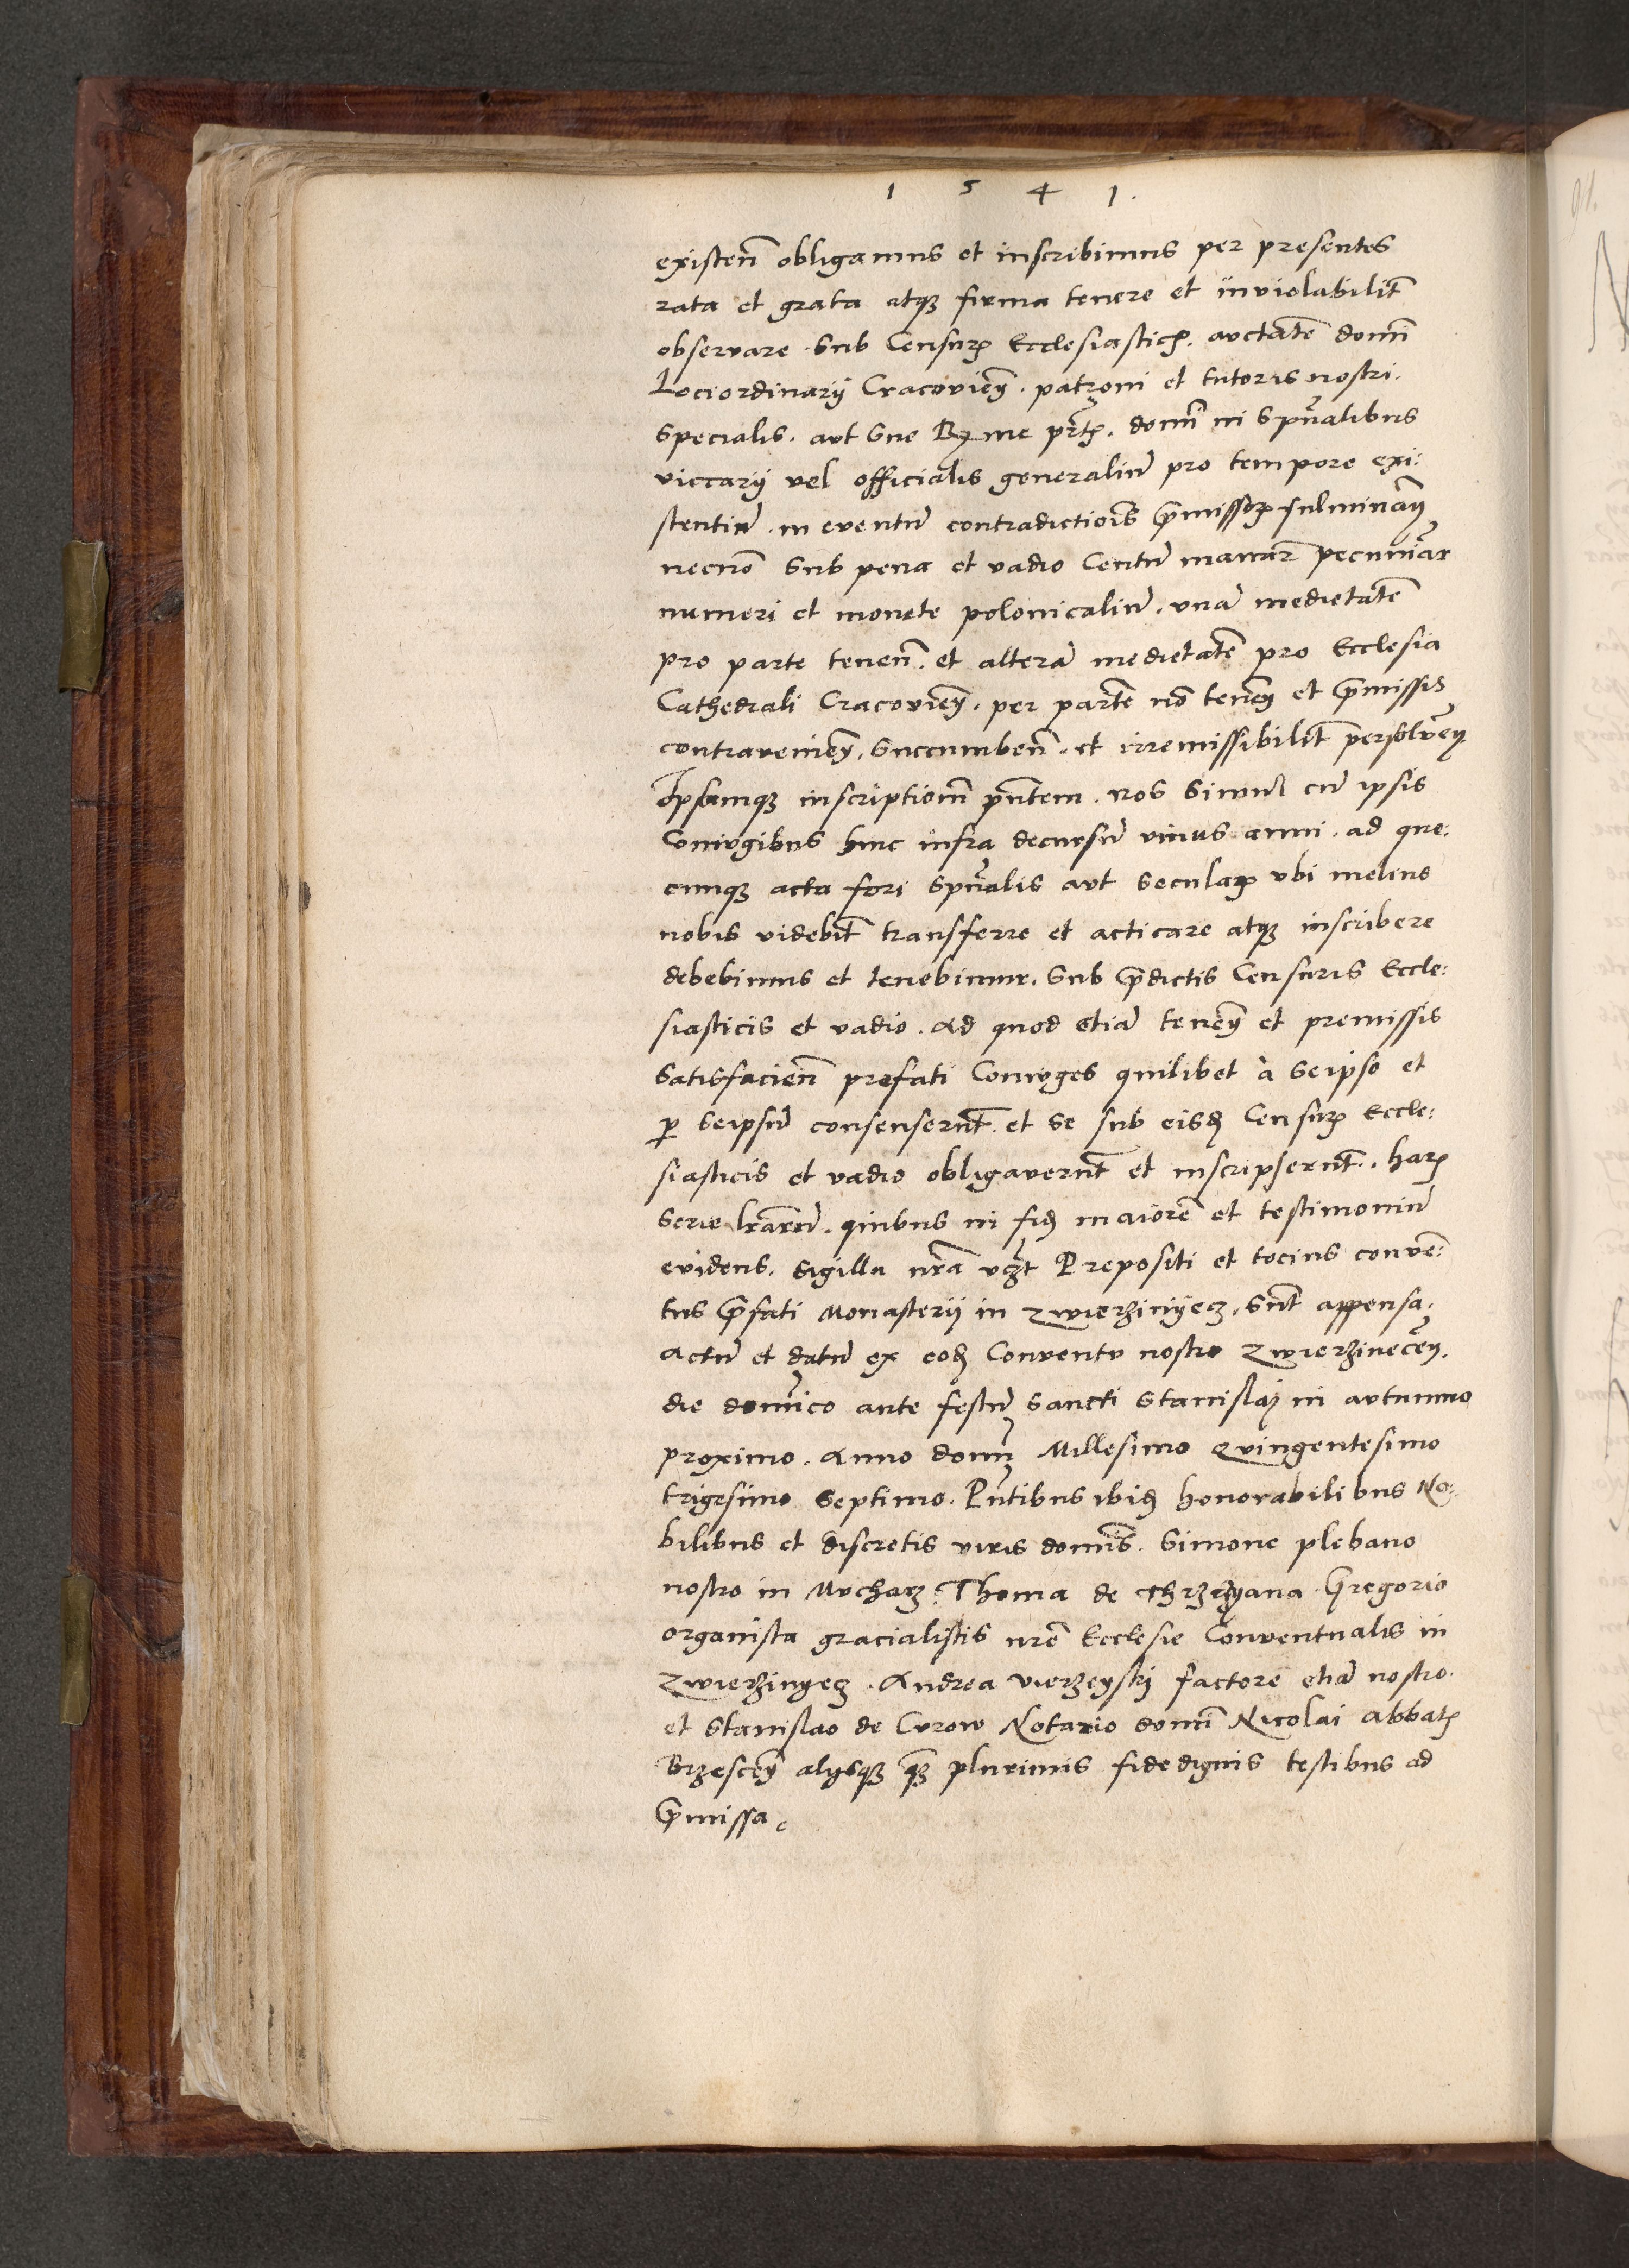 1 5 4 1.
existen̄ obligamus et inscribimus per presentes
rata et grata atqꝫ firma tenere et inviolabilit̄
observare. Sub Censurꝭ Ecclesiasticꝭ. auctatē domī
Lociordinarij Cracovień. patroni et tutoris nostri.
specialis. aut Sue prtꝭ. domī in Spūalibus
viccarij vel officialis generaliū pro tempore exi:
stentiū. in eventū contradictiois p̄missoꝝ fulminań
necnō Sub pena et vadio Centū marcar̄ pecuniar̄
numeri et monete polonicaliū. unā medietatē
pro parte tenen̄. et alterā medietatē pro Ecclesia
Cathedrali Cracovień. per partē nō teneń et p̄missis
contravenień. succumben̄. et irremissibilit̄ persolveń
Ipsamqꝫ inscriptionē pn̄tem. nos Simul cū ipsis
Coniugibus hinc infra decursū unius anni. ad que:
cunqꝫ acta fori Spūalis aut Secularꝭ ubi melius
nobis videbit̄ transferre et acticare atqꝫ inscribere
debebimus et tenebimur. Sub p̄dictis Censuris Eccle:
siasticis et vadio. Ad quod etiā teneń et premissis
Satisfacien̄ prefati Coniuges quilibet à Seipso et
ꝑ Seipsū consenserūt. et se sub eisdꝫ Censurꝭ Eccle:
siasticis et vadio obligaverūt et inscripserūt. harꝭ
Serie lr̄arū. quibus in fidꝫ maiorē et testimoniū
evidens. Sigilla nr̄a vꝫt Prepositi et tocius conven̄:
tus p̄fati Monasterij in Zwierzinijecz. sūt appensa.
Actū et datū ex eodꝫ Conventu nostro Zwierzineceń.
die domīco ante festū Sancti Stanislaj in autumno
proximo. Anno domī Millesimo Quingentesimo
trigesimo Septimo. Pn̄tibus ibidꝫ honorabilibus No:
bilibus et discretis viris domīs. Simone plebano
nostro in Mucharz. Thoma de Gregorio
organista gracialistis nrē Ecclesie Conventualis in
Zwierzinyecz. Andrea Vierzeyskj factore etiā nostro.
et Stanislao de Curow Notario domī Nicolai abbatꝭ
Brzesceń alijsqꝫ qꝫ plurimis fidedignis testibus ad
p̄missa.